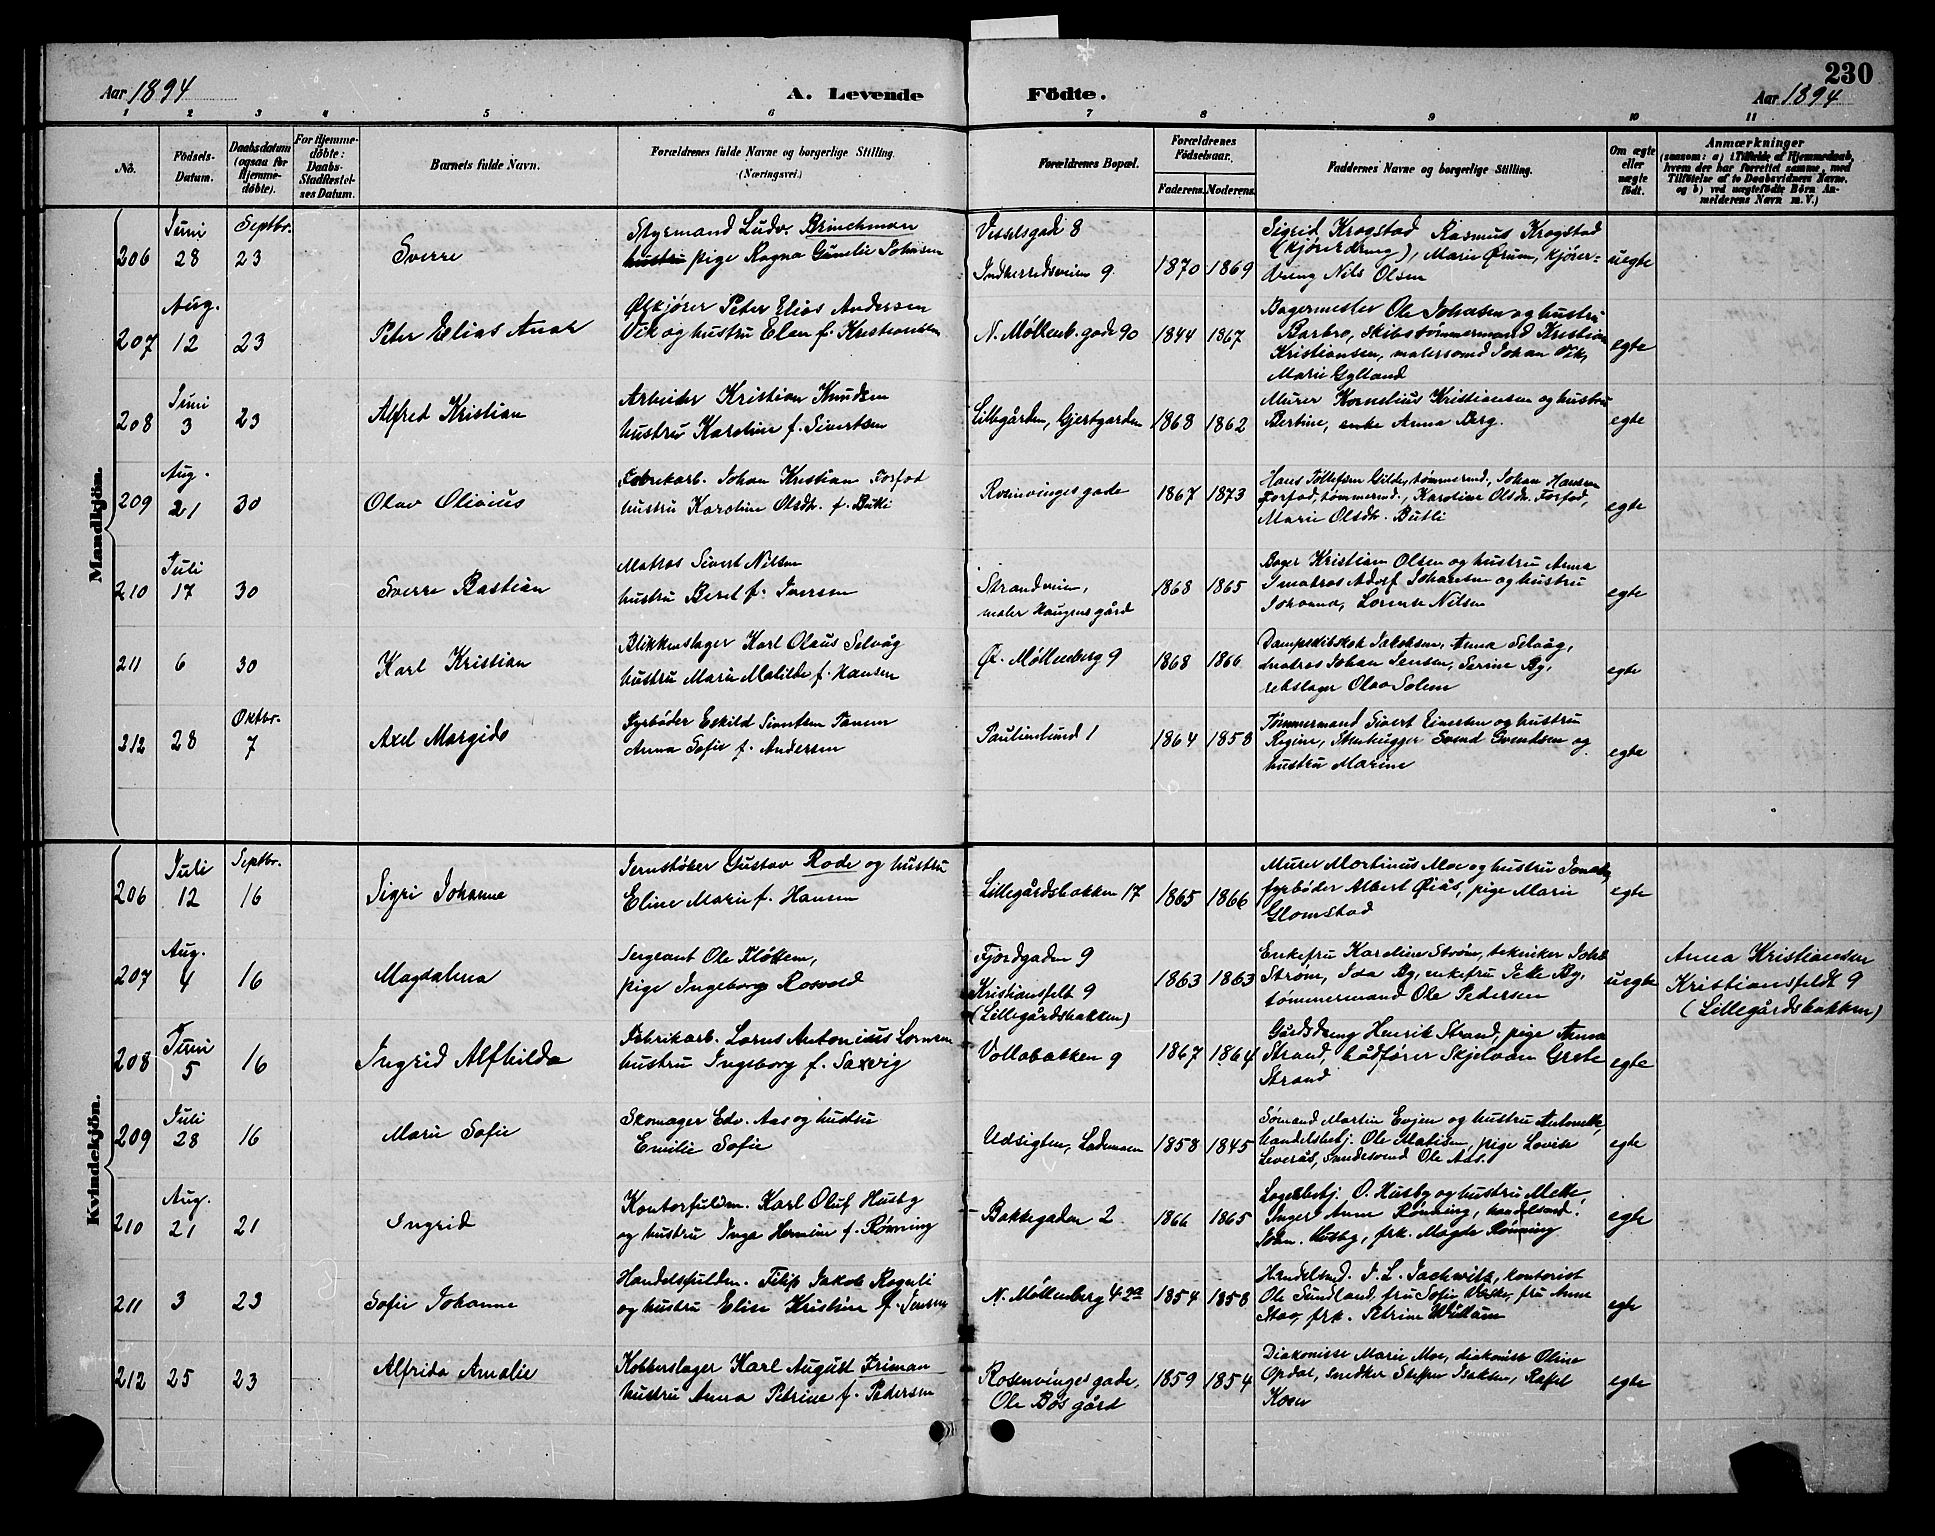 230
Aar 1894
A. Levende Födte.
Aar 1894
1 2 3 4 5 6 7 8 9 10 11
No.
Födsels-Datum.
Daabsdatum (ogsaa for Hjemme-döbte).
For Hjemme-döbte: Daabs-Stadfæstel-ses Datum.
Barnets fulde Navn.
Forældrenes fulde Navne og borgerlige Stilling.
(Næringsvei.)
Forældrenes Bopæl.
Forældrenes Födselsaar.
Faderens. Moderens.
Faddernes Navne og borgerlige Stilling.
Om ægte eller uægte födt.
Anmærkninger
(saasom: a) i Tilfælde af Hjemmedaab,
hvem der har forrettet samme, med
Tilföielse af to Daabsvidners Navne,
og b) ved uægtefödte Börn An-
melderens Navn m. V.)
Mandkjön.
206 Juni 28 Septbr. 23 Sverre
Styrmand Ludv. Brinchman
hustru pige Ragna Gunelie Johnsen
Vesselsgade 8
Indherredsveien 9
1870 1869
Sigrid Krogstad Rasmus Krogstad
(kjøredreng), Marie Ørum, kjøre-
dreng Nils Olsen
uegte
207 Aug. 12 23 Peter Elias Anar
Ølkjører Peter Elias Andersen
Vik og hustru Elen f. Kristiansen
N. Møllenb. gade 90
1844 1867
Bagermester Ole Johnsen og hustru
Barbro, skibstømmermand Kristian
Kristiansen, malersvend Johan Vik,
Marie Gylland
egte
208 Juni 3 23 Alfred Kristian
Arbeider Kristian Knudsen
hustru Karoline f. Sivertsen
Lillegården, Gjertgarden
1868 1862
Murer Kornelius Kristiansen og hustru
Bertine, enke Anna Berg.
egte
209 Aug. 21 30 Olav Olivius
Fabrikarb. Johan Kristian Forfod
hustru Karoline Olsdtr. f. Butli
Rosenvinges gade
1867 1873
Hans Tollefsen Gilde, tømmermd., Johan Hansen
Forfod, tømmermd., Karoline Olsdtr. Forfod,
Marie Olsdtr. Butli
egte
210 Juli 17 30 Sverre Bastian
Matros Sivert Nilsen
hustru Beret f. Iversen
Strandveien,
maler Haugens gård
1868 1865
Bager Kristian Olsen og hustru Anna
matros Adolf Johansen og hustru
Johanna, Lorents Nilsen
egte
211 6 30 Karl Kristian
Blikkenslager Karl Olaus Selvåg
hustru Marie Matilde f. Hansen
Ø. Møllenberg 9
1868 1866
Dampskibskok Jakobsen, Anna Selvåg,
matros Johan Jensen, Serine By,
rebslager Olav Solem
egte
212 28 Oktbr. 7 Axel Margido
Fyrbøder Eskild Sivertsen Tanem
Anna Sofie f. Andersen
Paulinelund 1
1864 1858
Tømmermand Sivert Einersen og hustru
Regine, Stenhugger Svend Svendsen og
hustru Marine
egte
Kvindekjön.
206 Juli 12 Septbr. 16 Sigri Johanne
Jernstøber Gustav Rode og hustru
Eline Marie f. Hansen
Lillegårdsbakken 17
1865 1866
Murer Martinus Moe og hustru
fyrbøder Albert Øiås, pige Marie
Glomstad
egte
207 Aug. 4 16 Magdalena
Sergeant Ole Fløttem,
pige Ingeborg Rosvold
Fjordgaden 9
Kristiansfelt 9
(Lillegårdsbakken)
1863 1863
Enkefru Karoline Strøm, tekniker Johs
Strøm, Ida By, enkefru Jette By,
tømmermand Ole Pedersen
uegte
Anna Kristiansen
Kristiansfeldt 9
(Lillegårdsbakken)
208 Juni 5 16 Ingrid Alfhilda
Fabrikarb. Lorns Antonius Lornsen
hustru Ingeborg f. Saxvig
Vollabakken 9
1867 1864
Gårdsdreng Henrik Strand, pige Anna
Strand, bådfører Skjelvan Grete
Strand
egte
209 Juli 28 16 Marie Sofie
Skomager Edv. Aas og hustru
Emilie Sofie
Udsigten, Lademoen
1858 1845
Sømand Martin Evjen og hustru Antonette,
handelsbetj. Ole Matisen, pige Lovise
Leverås, smedesvend Ole Aas.
egte
210 Aug. 21 21 Ingrid
Kontorfuldm. Karl Oluf Husby
og hustru Inga Hermine f. Rønning
Bakkegaden 2
1866 1865
Lagerbetj. O. Husby og hustru Mette,
Inger Anne Rønning, handelsmd.
Joh. Husby, frk. Magda Rønning
egte
211 3 23 Sofie Johanne
Handelsfuldm. Filip Jakob Rognli
og hustru Elise Kristine f. Jensen
N. Møllenberg 42a
1854 1858
Handelsmd. J. L. Jachwitz, kontorist
Ole Sundland, fru Sofie, fru Anne
Stav, frk. Petrine Willam
egte
212 25 23 Alfrida Amalie
Kobberslager Karl August Friman
hustru Anna Petrine f. Pedersen
Rosenvinges gade,
Ole Bøs gård
1859 1854
Diakonisse Marie Moe, diakonisse Oline
Opdal, snedker Steffen Isaksen, Rafael
Koser
egte